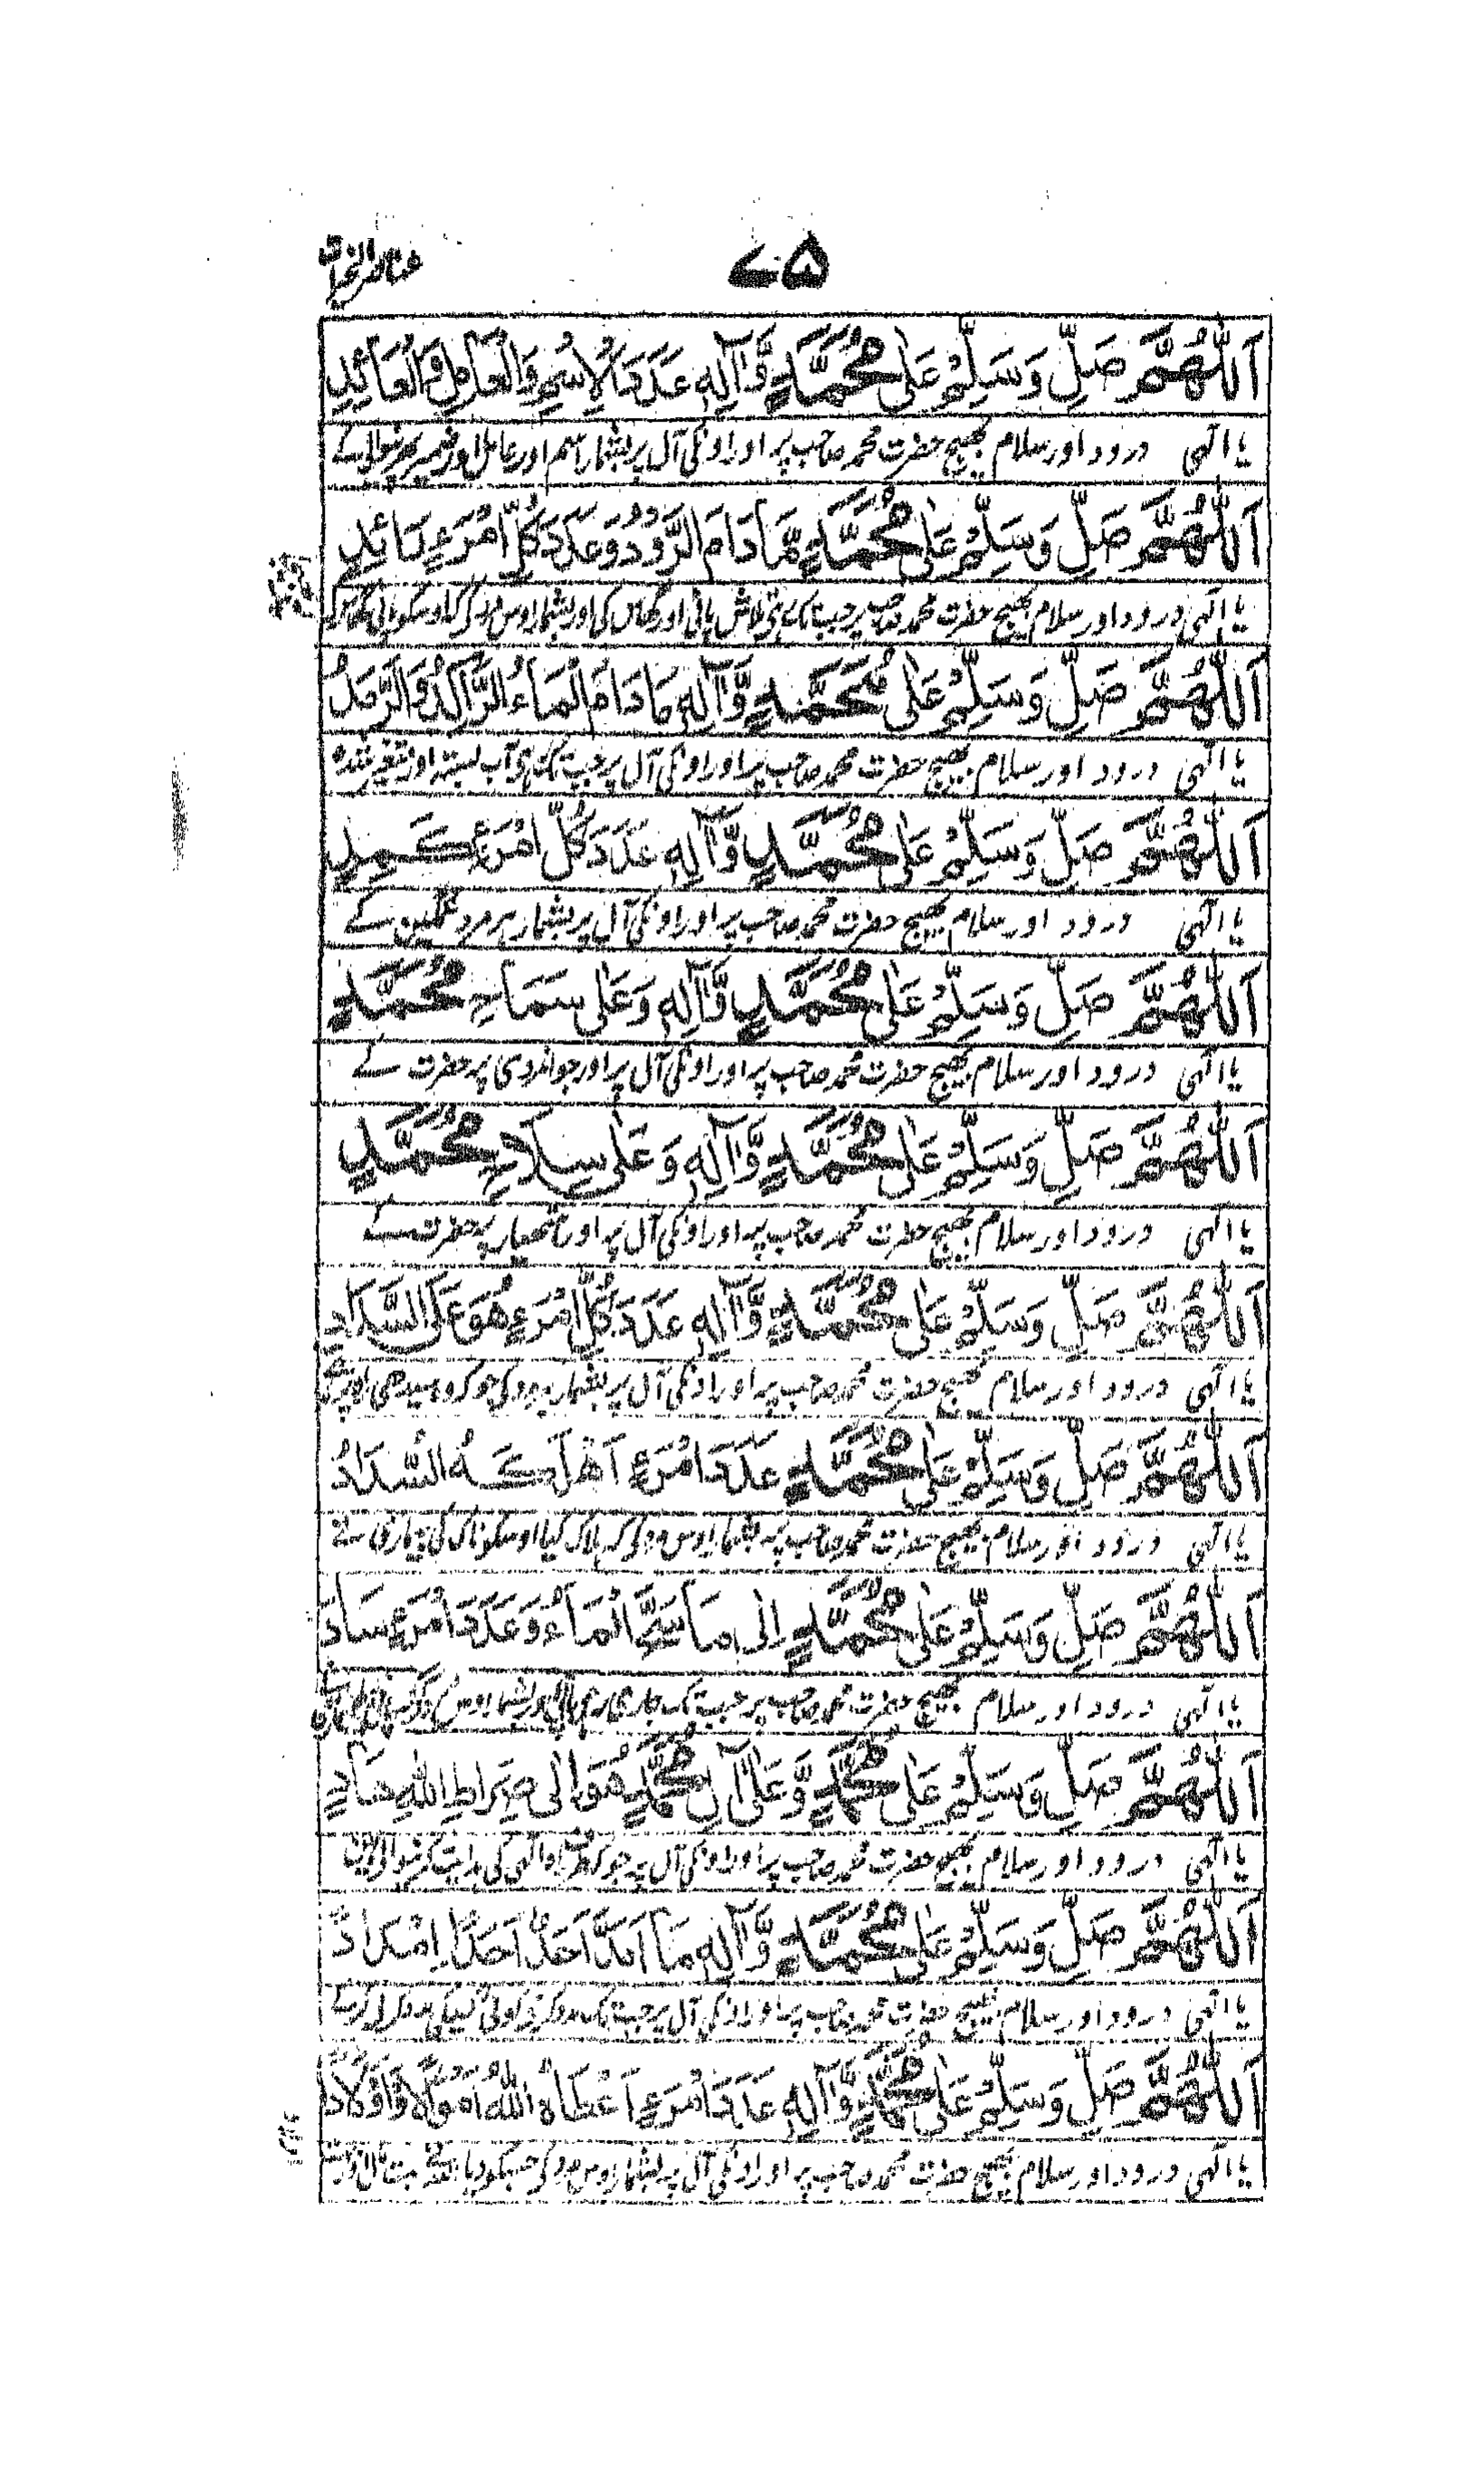 ۷۵
اَللّٰهُمَّ صَلِّ وَسَلِّمْ عَلٰى مُحَمَّدٍ وَّاٰلِهٖ عَدَدَ الْاِسْمِ وَالْعَامِلِ وَالْعَائِدِ
یا الٰہی درود اور سلام بھیج حضرت محمد صاحب پر اور اونکی آل پر بشمار اسم اور عامل اور ضمیر
اَللّٰهُمَّ صَلِّ وَسَلِّمْ عَلٰى مُحَمَّدٍ مَّا دَامَ الرَّوْدُ وَعَدَدَ كُلِّ امْرَءٍ
یا الٰہی درود اور سلام بھیج حضرت محمد صاحب پر جب تک ہے تلاش پانی اور گھاس کی اور بشمار اوس مرد کی کہ
اَللّٰهُمَّ صَلِّ وَسَلِّمْ عَلٰى مُحَمَّدٍ وَّاٰلِهٖ مَا دَامَ الْمَاءُ الرَّاكِدُ وَالرَّمِدُ
یا الٰہی درود اور سلام بھیج حضرت محمد صاحب پر اور اونکی آل پر جب تک ہے آب بستہ اور متغیر شدہ
اَللّٰهُمَّ صَلِّ وَسَلِّمْ عَلٰى مُحَمَّدٍ وَّاٰلِهٖ عَدَدَ كُلِّ امْرَءٍ كَمِدٍ
یا الٰہی درود اور سلام بھیج حضرت محمد صاحب پر اور اونکی آل پر بشمار ہر مرد غمگین کے
اَللّٰهُمَّ صَلِّ وَسَلِّمْ عَلٰى مُحَمَّدٍ وَّاٰلِهٖ وَعَلٰى سَمَاحِ مُحَمَّدٍ
یا الٰہی درود اور سلام بھیج حضرت محمد صاحب پر اور اونکی آل پر اور جوانمردی پر حضرت کے
اَللّٰهُمَّ صَلِّ وَسَلِّمْ عَلٰى مُحَمَّدٍ وَّاٰلِهٖ وَعَلٰى سِلَاحِ مُحَمَّدٍ
یا الٰہی درود اور سلام بھیج حضرت محمد صاحب پر اور اونکی آل پر اور ہتھیار پر حضرت کے
اَللّٰهُمَّ صَلِّ وَسَلِّمْ عَلٰى مُحَمَّدٍ وَّاٰلِهٖ عَدَدَ كُلِّ امْرَءٍ هُوَ عَلَى السَّدَادِ
یا الٰہی درود اور سلام بھیج حضرت محمد صاحب پر اور اونکی آل پر بشمار ہر مرد کی جو کہ وہ سیدھی راہ پر ہے
اَللّٰهُمَّ صَلِّ وَسَلِّمْ عَلٰى مُحَمَّدٍ عَدَدَ امْرَءٍ اَهْلَكَهُ السُّدَادُ
یا الٰہی درود اور سلام بھیج حضرت محمد صاحب پر بشمار اوس مرد کی کہ ہلاک کیا اوسکو ناک کی بیماری نے
اَللّٰهُمَّ صَلِّ وَسَلِّمْ عَلٰى مُحَمَّدٍ اِلٰى مَا الْمَاءُ وَعَدَدَ امْرَءٍ سَادَ
یا الٰہی درود اور سلام بھیج حضرت محمد صاحب پر جب تک جاری رہی پانی اور بشمار اوس مرد کی
اَللّٰهُمَّ صَلِّ وَسَلِّمْ عَلٰى مُحَمَّدٍ وَّعَلٰى اٰلِ مُحَمَّدٍ هُوَ اِلٰى صِرَاطِ اللّٰهِ هَادٍ
یا الٰہی درود اور سلام بھیج حضرت محمد صاحب پر اور اونکی آل پر جو کہ طرف راہ الٰہی کی ہدایت کرنیوالے ہیں
اَللّٰهُمَّ صَلِّ وَسَلِّمْ عَلٰى مُحَمَّدٍ وَّاٰلِهٖ مَا اَمَدَّ اَحَدٌ اَحَدًا اِمْدَادًا
یا الٰہی درود اور سلام بھیج حضرت محمد صاحب پر اور اونکی آل پر جب تک مدد کرے کوئی کسیکی مدد کر کر کے
اَللّٰهُمَّ صَلِّ وَسَلِّمْ عَلٰى مُحَمَّدٍ وَّاٰلِهٖ عَدَدَ امْرَءٍ اَعْطَاهُ اللّٰهُ اَمْوَالًا وَّاَوْلَادًا
یا الٰہی درود اور سلام بھیج حضرت محمد صاحب پر اور اونکی آل پر بشمار اوس مرد کی جسکو دیا اللہ نے بہت مال